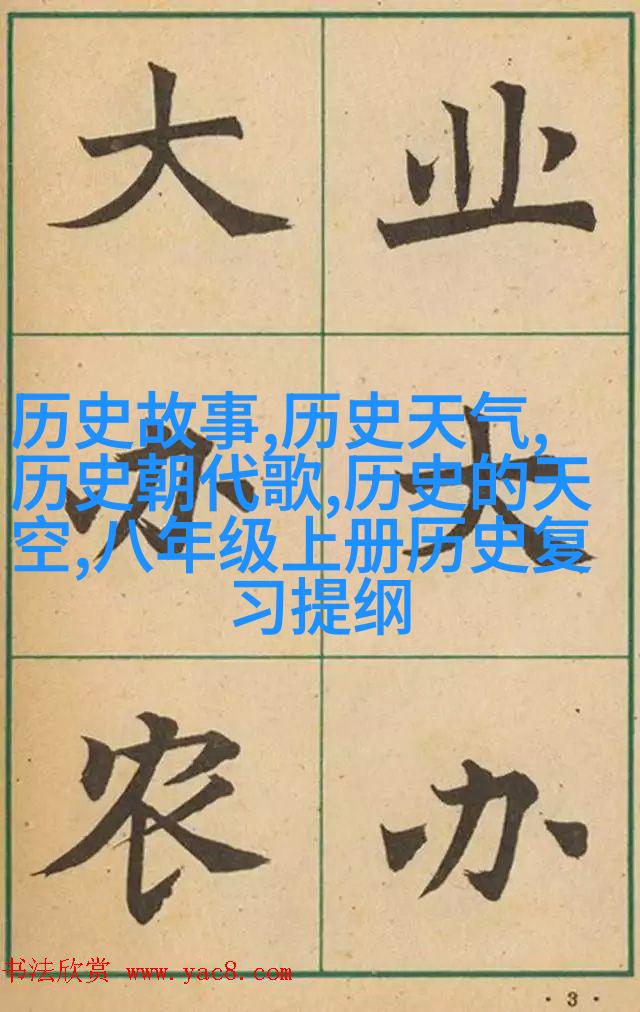 业大办
大办农
历史故事,历史天气,
历史朝代歌,历史的天
空,八年级上册历史复
习提纲
书法欣赏 www.yac8.com
· 3 ·